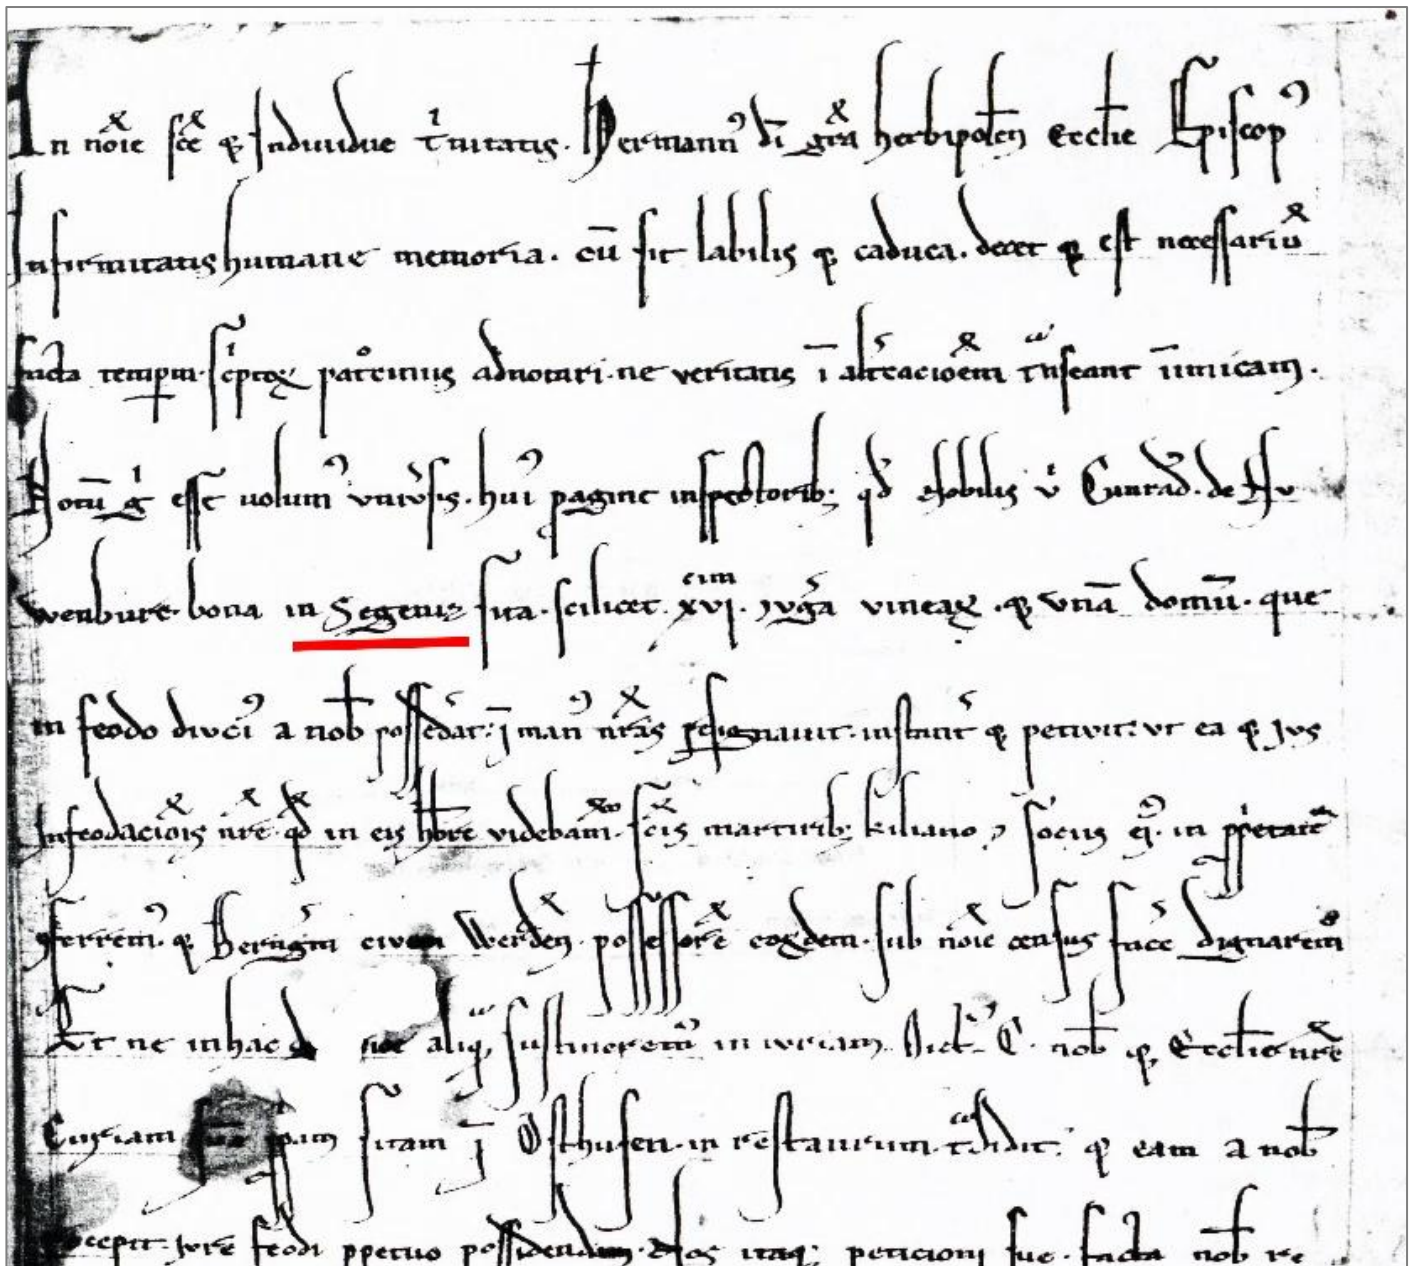 In noīe sce ⁊ Indiuidue t̄nitatis. Hermann⁹ di gr̄a herbipoleñ Ecclie Episcop⁹
Infirmitatis humane memoria. cū sit labilis ⁊ caduca. decet ⁊ est necessariū
facta tempꝝ scptoꝝ patrociniis adnotari. ne veritatis ī alt̄cacioēm t̄nseant inimicam.
Notū gͥ esse uolum⁹ vniv̄sis. hui⁹ pagine inspectorib; qd Nobilis vͥ Cunrad. de Hv
wenburc. bona in Segeniz sita. scilicet. xvj. iug̃a vineaꝝ. ⁊ vnā domū. que
in feodo diuci⁹ a nob possedat. ī man⁹ nr̄as resignauit. instant̄ ⁊ petivit. vt ea ⁊ Jus
Infeodaciois nr̄e. qd in eis hr̄e videbam. sc̄is martirib; kiliano ⁊ sociis ei⁹. in ppetatē
gferrem⁹. ⁊ Berng̃m civem Werdeñ. possessorē eoꝝdem. sub noīe census fac̄e dignarem⁹
Et ne in hac nos aliq; sustinerem⁹ in iuriam. Dict⁹ C. nob ⁊ Ecclie nr̄e
Curiam suā ppam sitam ī Osthusen. in restaurum t̄didit. ⁊ eam a nob
recepit. iure feodi ppetuo possidendam. Nos itaq; peticioni sue. facta nob re